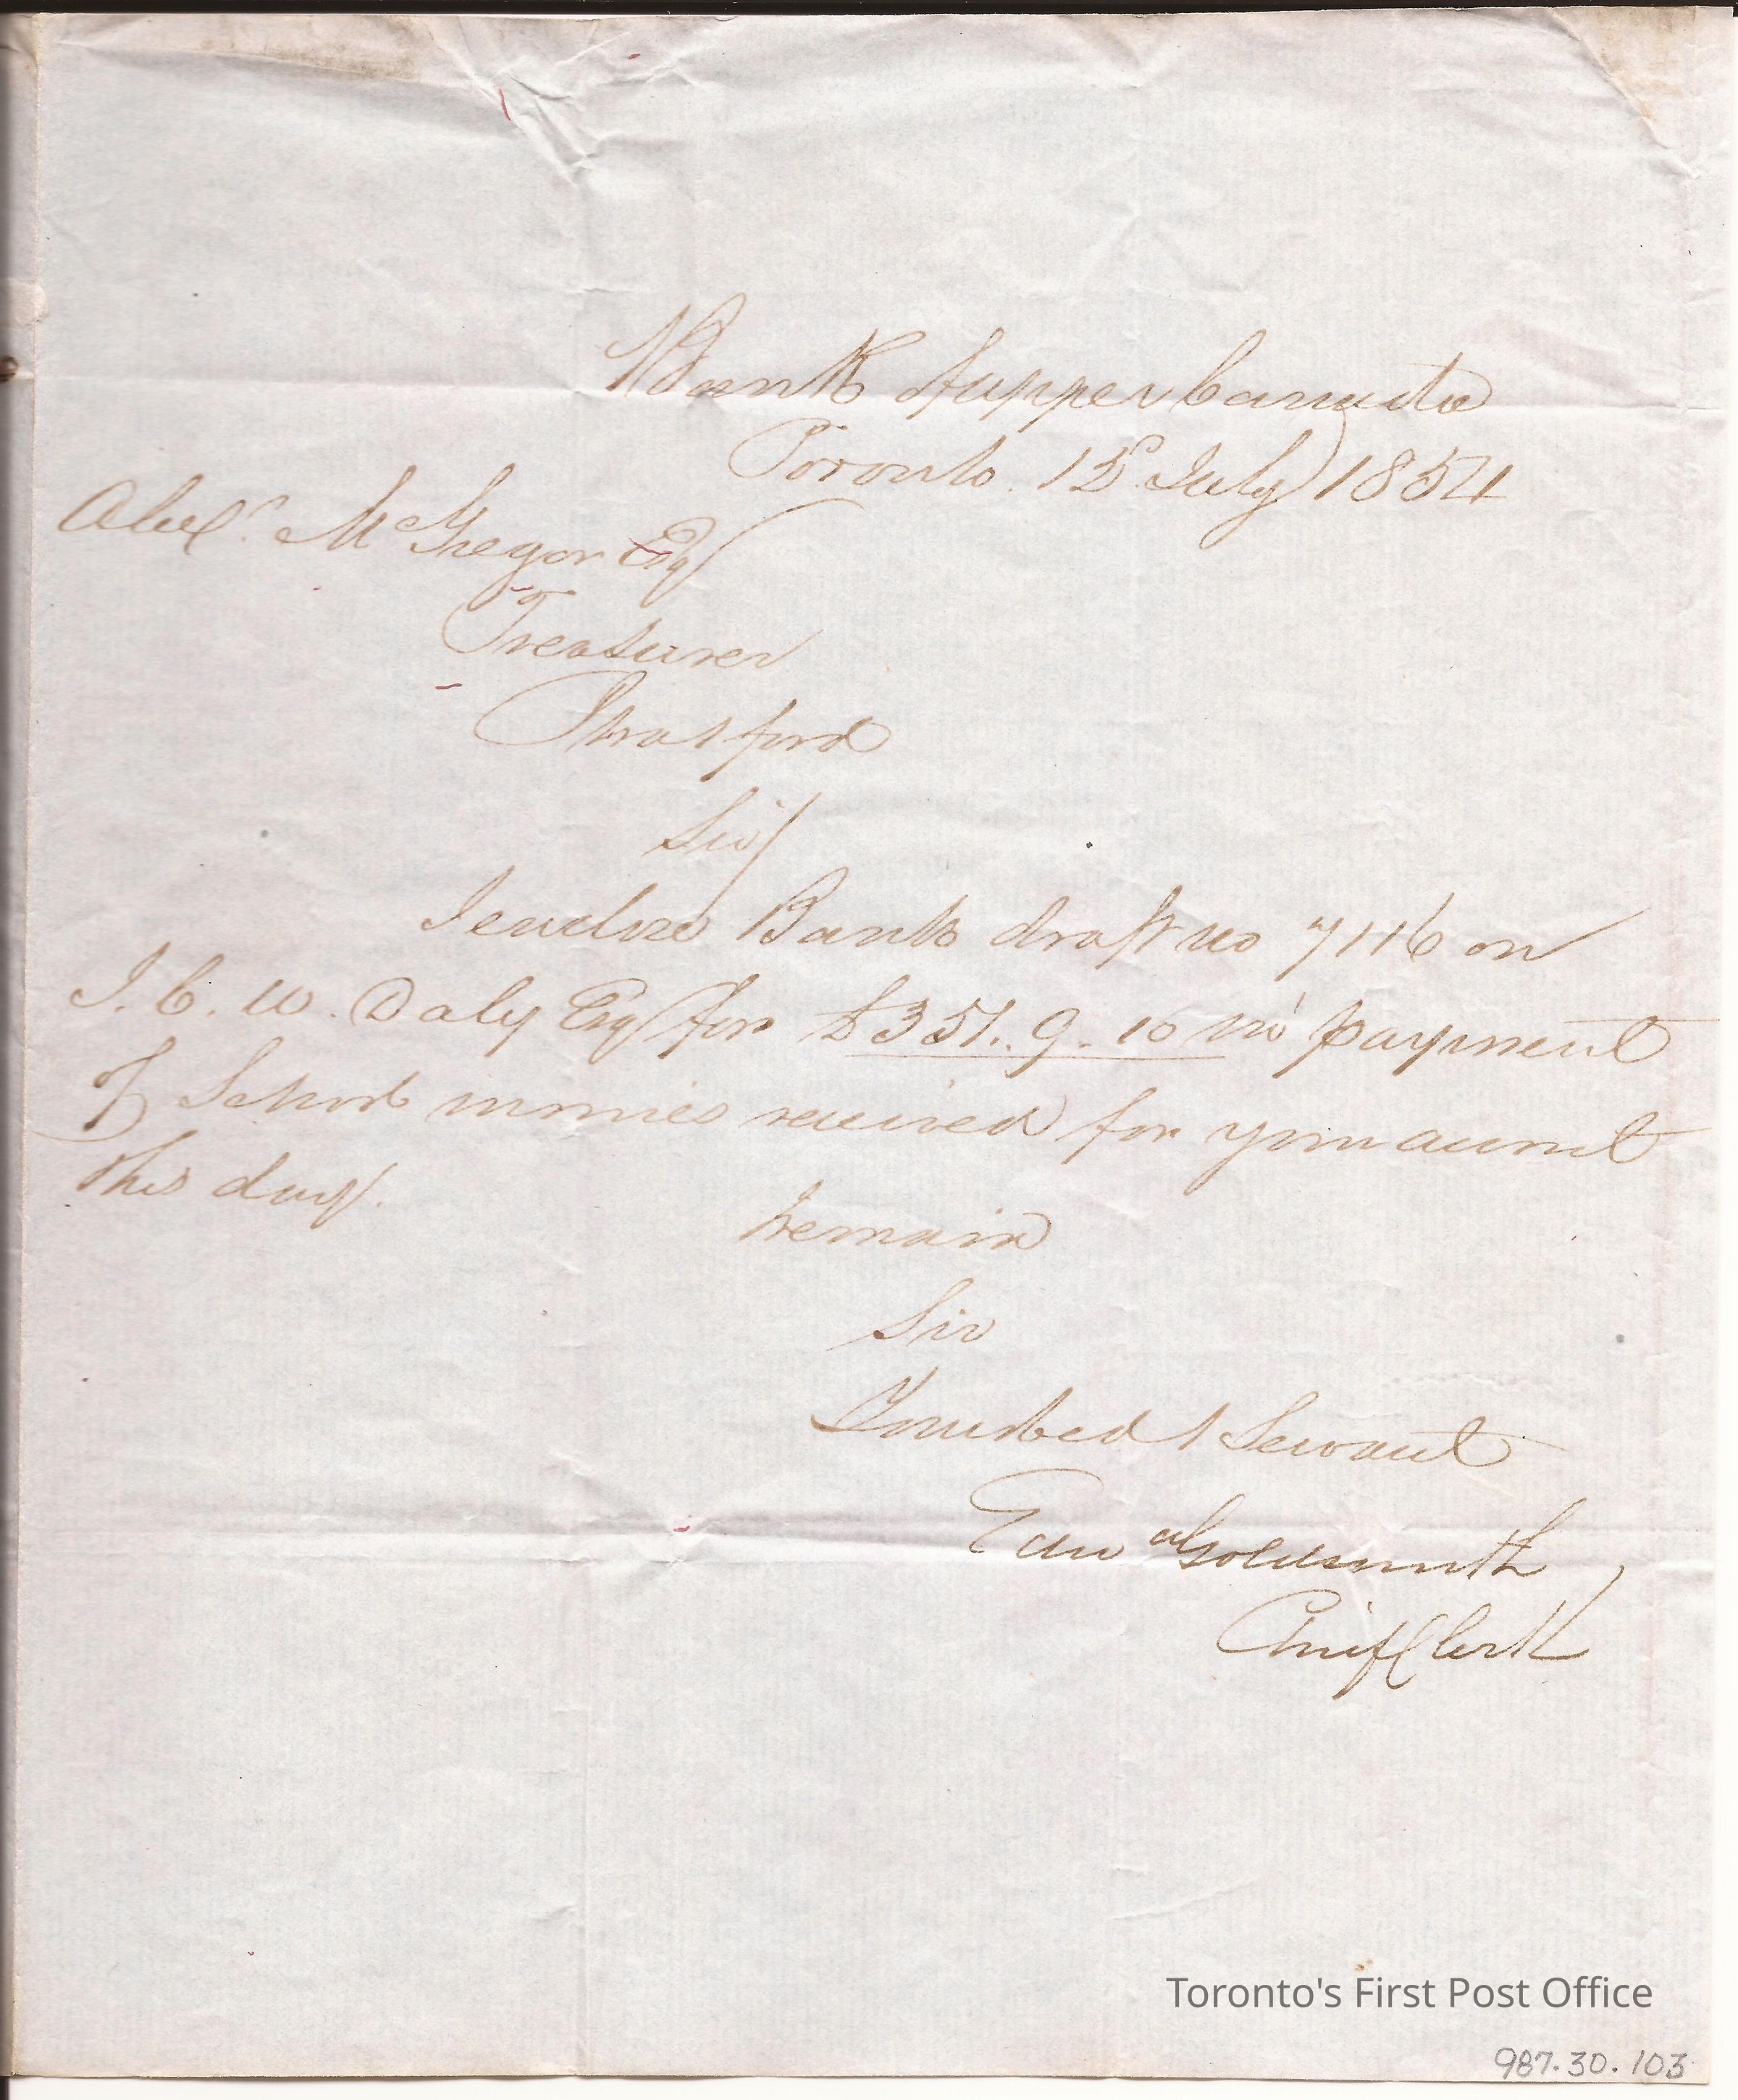 Bank of upper Canada
Toronto. 15 July 1854
Alexr. McGregor Esq
Treasurer
Stratford
Sir/
I enclose Bank draft no 7116 on
J. C. W. Daly Esq for £351.. 9. 10 in payment
of School monies received for your account
this day.
Remain
Sir
Your obedt Servant
Edwd Goldsmith
Chief Clerk
Toronto's First Post Office
987.30.103